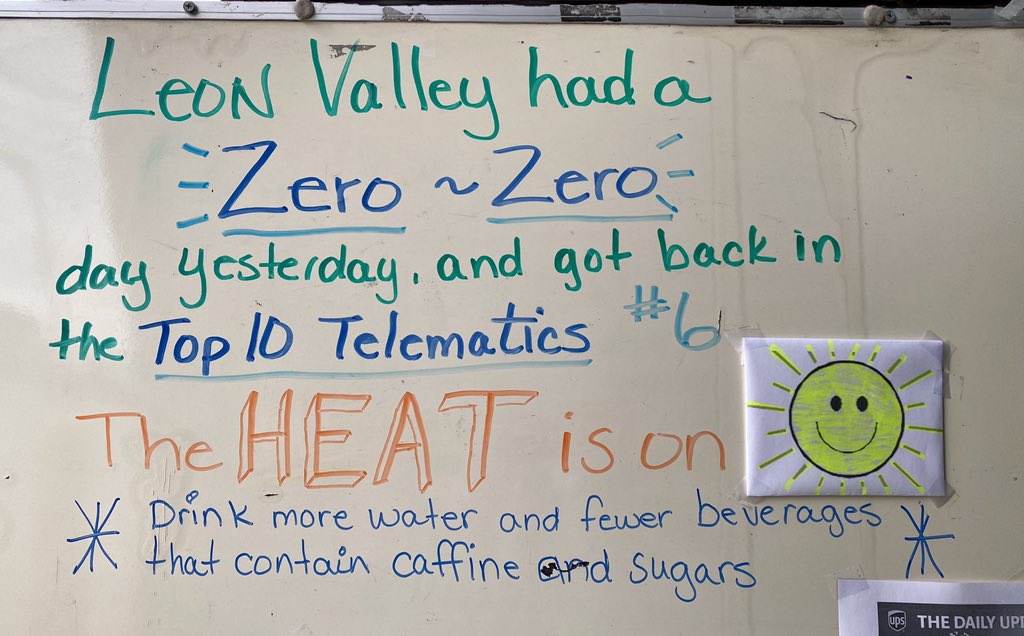 Leon Valley had a
Zero ~ Zero
day yesterday, and got back in
the Top 10 Telematics #6
The HEAT is on
* Drink more water and fewer beverages *
that contain caffine and sugars
ups THE DAILY